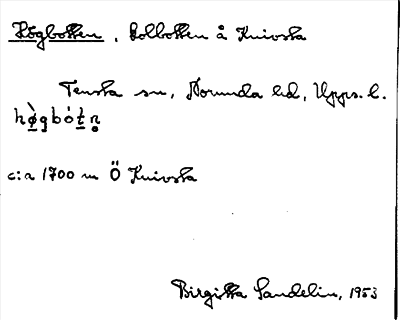 Högbotten, Kolbotten å Knivsta
Tensta sn, Norunda hd, Upps. l.
hø̀gbót̲n̥
c:a 1700 m Ö Knivsta
Birgitta Sandelin, 1953